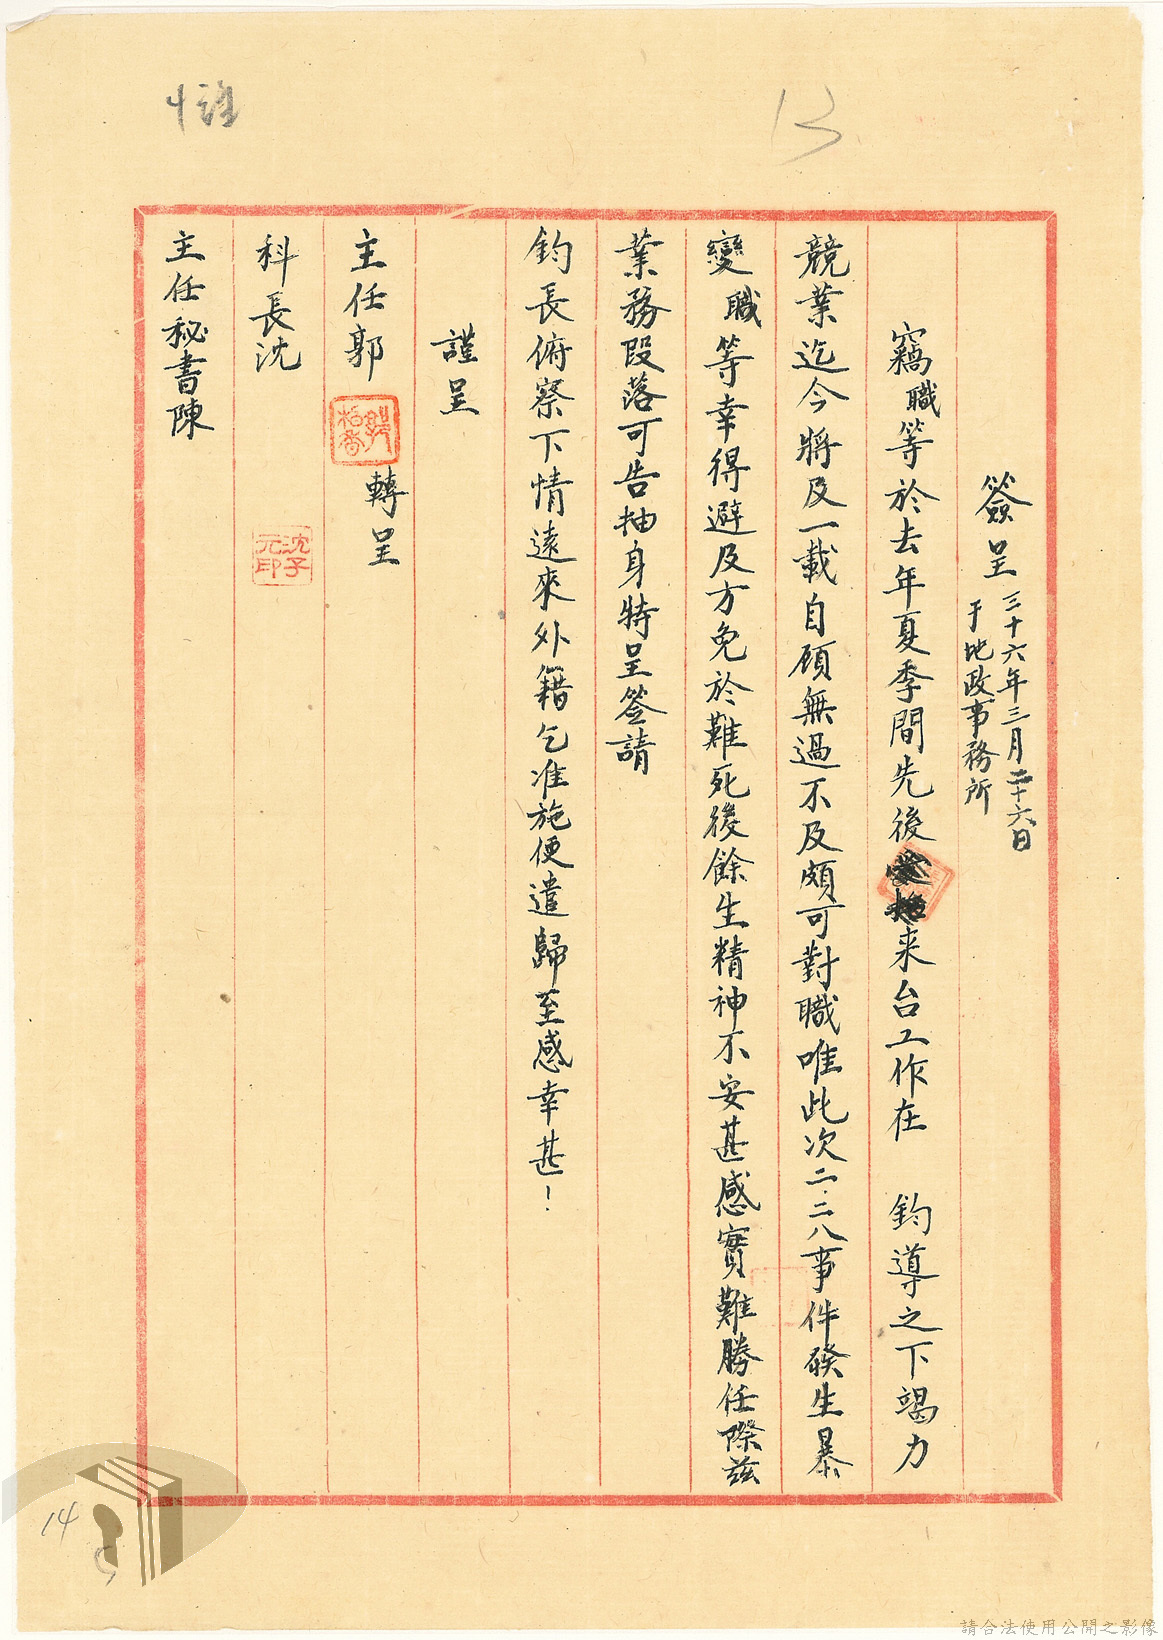 13
簽呈 三十六年三月二十六日
于地政事務所
竊職等於去年夏季間先後来台工作在 鈞導之下竭力
競業迄今將及一載自顧無過不及頗可對職唯此次二.二八事件發生暴
變職等幸得避及方免於難死後餘生精神不安甚感實難勝任際茲
業務段落可告抽身特呈簽請
鈞長俯察下情遠來外籍乞准施便遣歸至感幸甚！
謹呈
主任郭 轉呈
郭柏喬
科長沈
沈子元印
主任秘書陳
14
請合法使用公開之影像